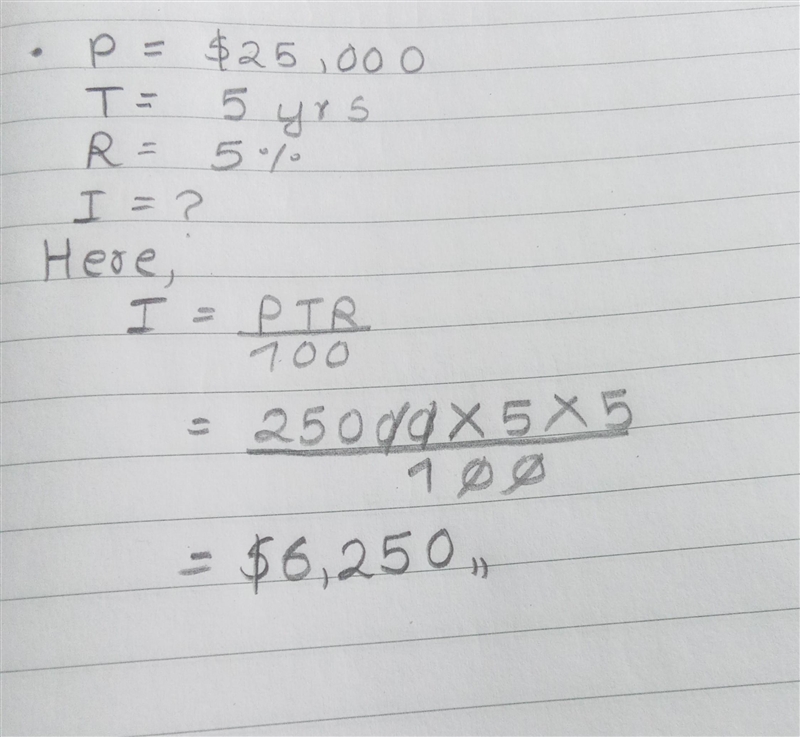 • P = $25,000
T = 5 yrs
R = 5%
I = ?
Here,
I = PTR
100
= 25000 X 5 X 5
100
= $6,250,,